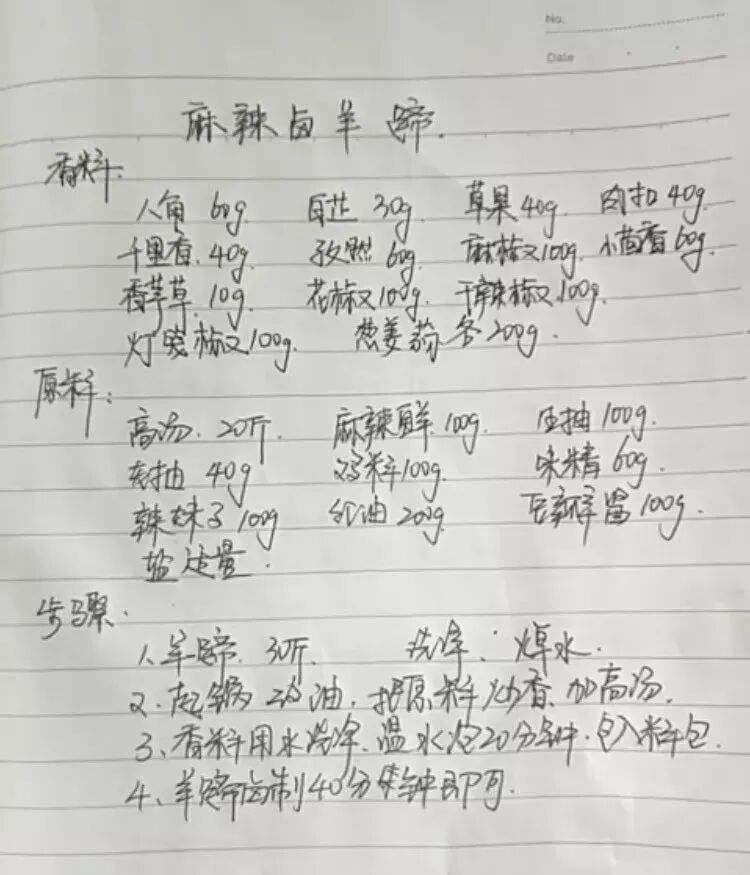 No.
Date
麻辣卤羊蹄.
香料:
八角 60g 白芷 30g 草果 40g 肉扣 40g
千里香 40g 孜然 60g 麻椒 100g 小茴香 60g
香茅草 10g 花椒 100g 干辣椒 100g
灯笼椒 100g 葱姜蒜各 200g
原料:
高汤 20斤 麻辣鲜 100g 生抽 100g
老抽 40g 鸡料 100g 味精 60g
辣妹子 100g 红油 200g 豆瓣酱 100g
盐适量.
步骤.
1、羊蹄 30斤 洗净、焯水.
2、起锅 油,把原料炒香 加高汤.
3、香料用水洗净、温水泡20分钟、包入料包.
4、羊蹄卤制40分钟即可.